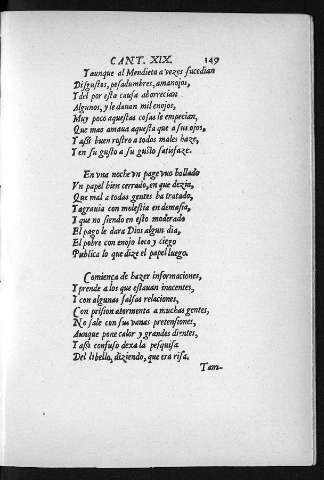 CANT. XIX. 149
Y aunque al Mendieta a vezes sucedian
Disgustos, pesadumbres, amanojos,
Y del por esta causa aborrecian
Algunos, y le dauan mil enojos,
Muy poco aquestas cosas le empecian,
Que mas amaua aquesta que a sus ojos,
Y assi buen rostro a todo males haze,
Y en su gusto a su gusto satisfaze.
En vna noche vn page vuo hallado
Vn papel bien cerrado, en que dezia,
Que mal a todas gentes ha tratado,
Y agrauia con molestia en demasia,
Y que no siendo en esto moderado
El pago le dara Dios algun dia,
El pobre con enojo loco y ciego
Publica lo que dize el papel luego.
Comiença de hazer informaciones,
Y prende a los que estauan inocentes,
Y con algunas falsas relaciones,
Con prision atormenta a muchas gentes,
No sale con sus vanas pretensiones,
Aunque pone calor y grandes dientes,
Y assi confuso dexa la pesquisa
Del libello, diziendo, que era risa.
Tam-